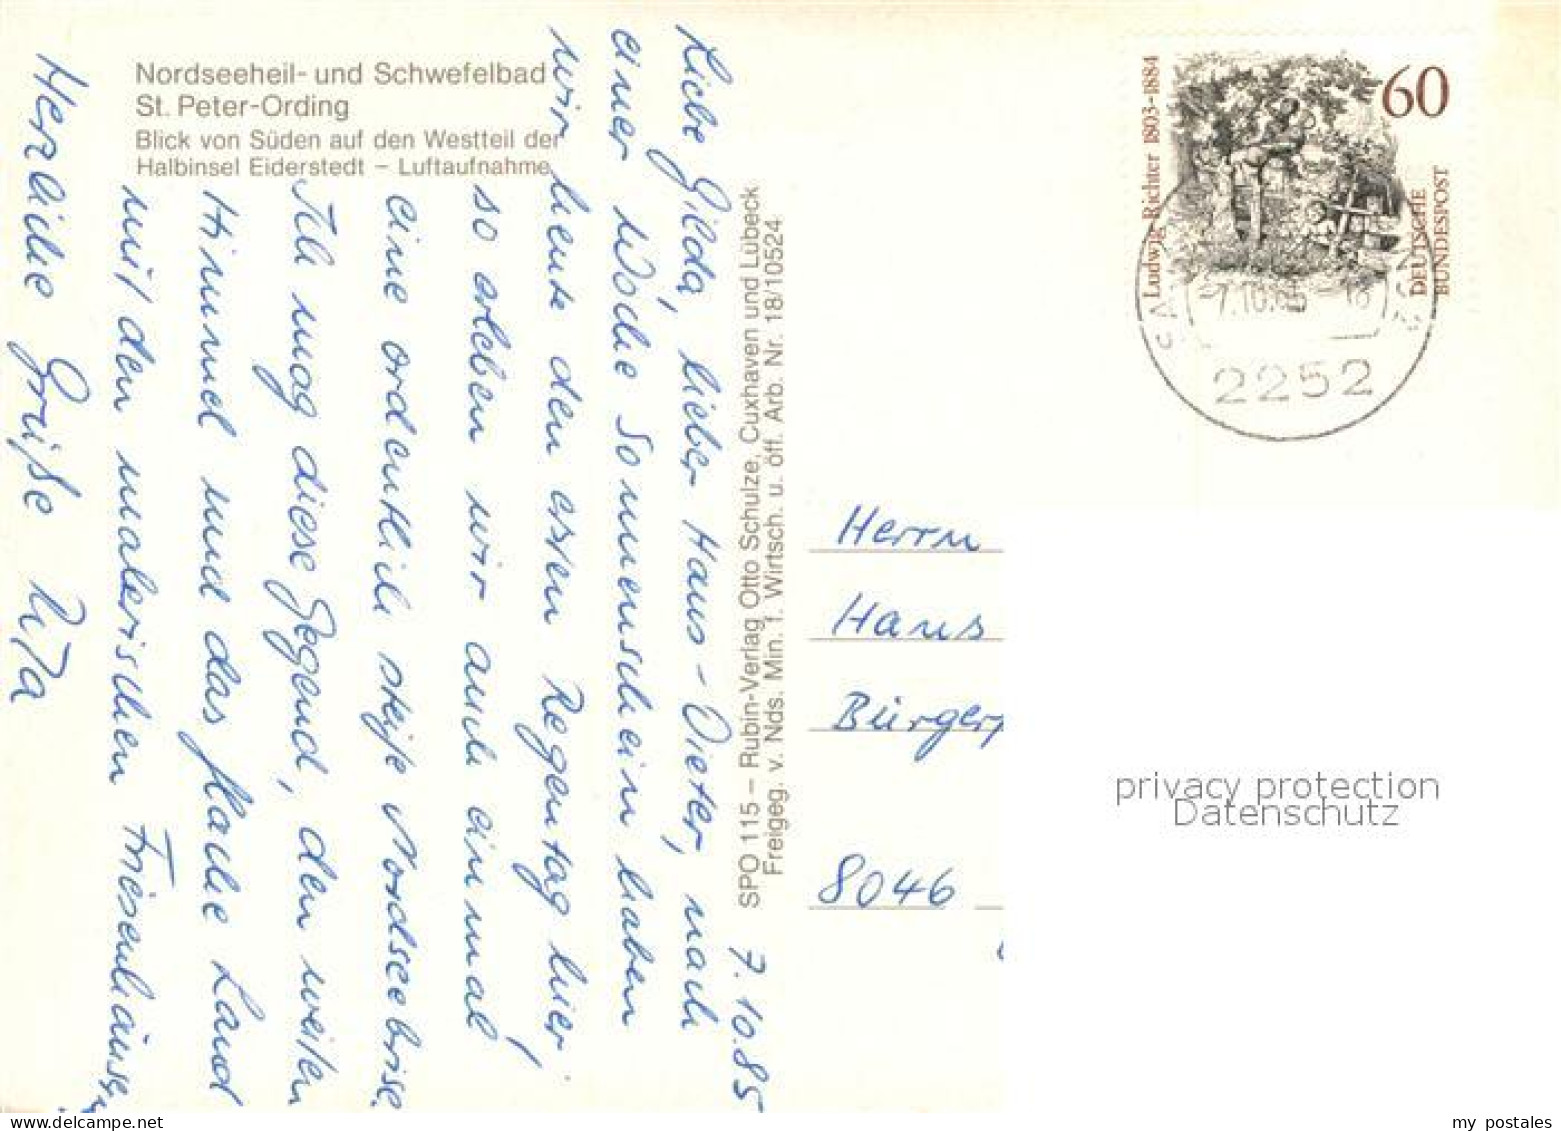 Nordseeheil- und Schwefelbad
St. Peter-Ording
Blick von Süden auf den Westteil der
Halbinsel Eiderstedt – Luftaufnahme
7.10.85
Liebe Gilda, lieber Hans-Dieter, nach
einer Woche Sonnenschein haben
wir heute den ersten Regentag hier
so erleben wir auch einmal
eine ordentlich steife Nordseebrise.
Ich mag diese Gegend, den weiten
Himmel und das flache Land
mit den malerischen Friesenhäusern.
Herzliche Grüße Uta
SPO 115 – Rubin-Verlag Otto Schulze, Cuxhaven und Lübeck
Freigeg. v. Nds. Min. f. Wirtsch. u. öff. Arb. Nr. 18/10524
Ludwig Richter 1803-1884
60
DEUTSCHE
BUNDESPOST
-7.10.85
2252
Herrn
Hans
Bürger
8046
privacy protection
Datenschutz
my postales